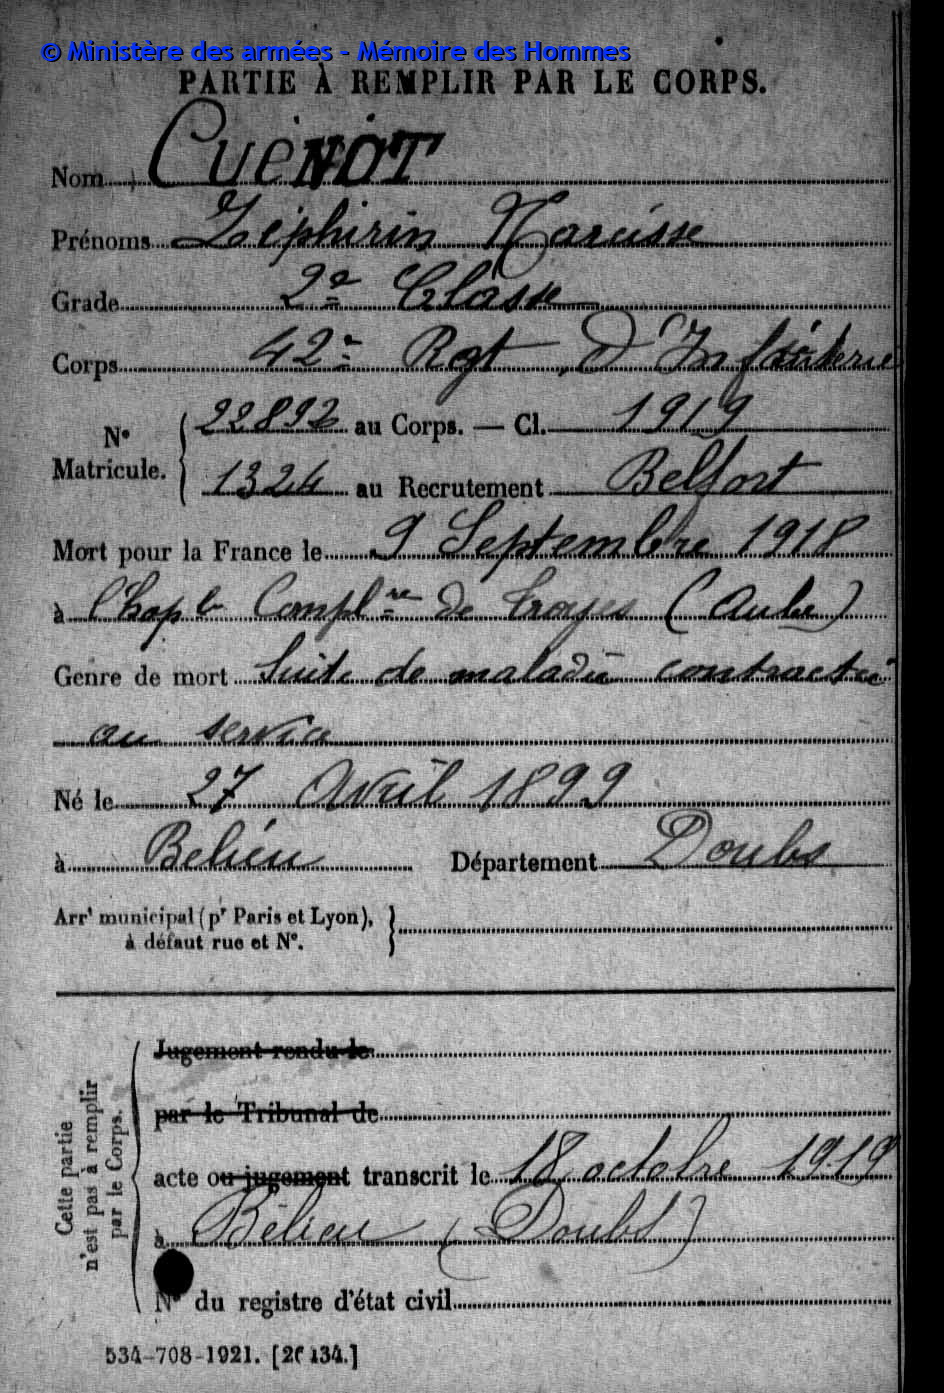 © Ministère des armées - Mémoire des Hommes
PARTIE À REMPLIR PAR LE CORPS.
Nom CUENOT
Prénoms Zéphirin Narcisse
Grade 2e Classe
Corps 42e Rgt D'Infanterie
No Matricule. 22892 au Corps. — Cl. 1919
1324 au Recrutement Belfort
Mort pour la France le 9 Septembre 1918
à l'hopl Complre de Troyes (Aube)
Genre de mort Suite de maladie contractée
au service
Né le 27 Avril 1899
à Belieu Département Doubs
Arrt municipal (pr Paris et Lyon),
à défaut rue et No.
Cette partie
n'est pas à remplir
par le Corps.
Jugement rendu le
par le Tribunal de
acte ou jugement transcrit le 18 octobre 1919
à Bélieu (Doubs)
No du registre d'état civil
534-708-1921. [26434.]